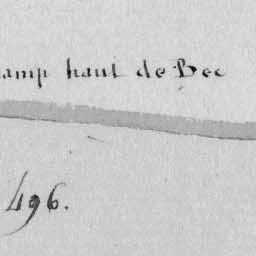 amp haut de Bec
496.